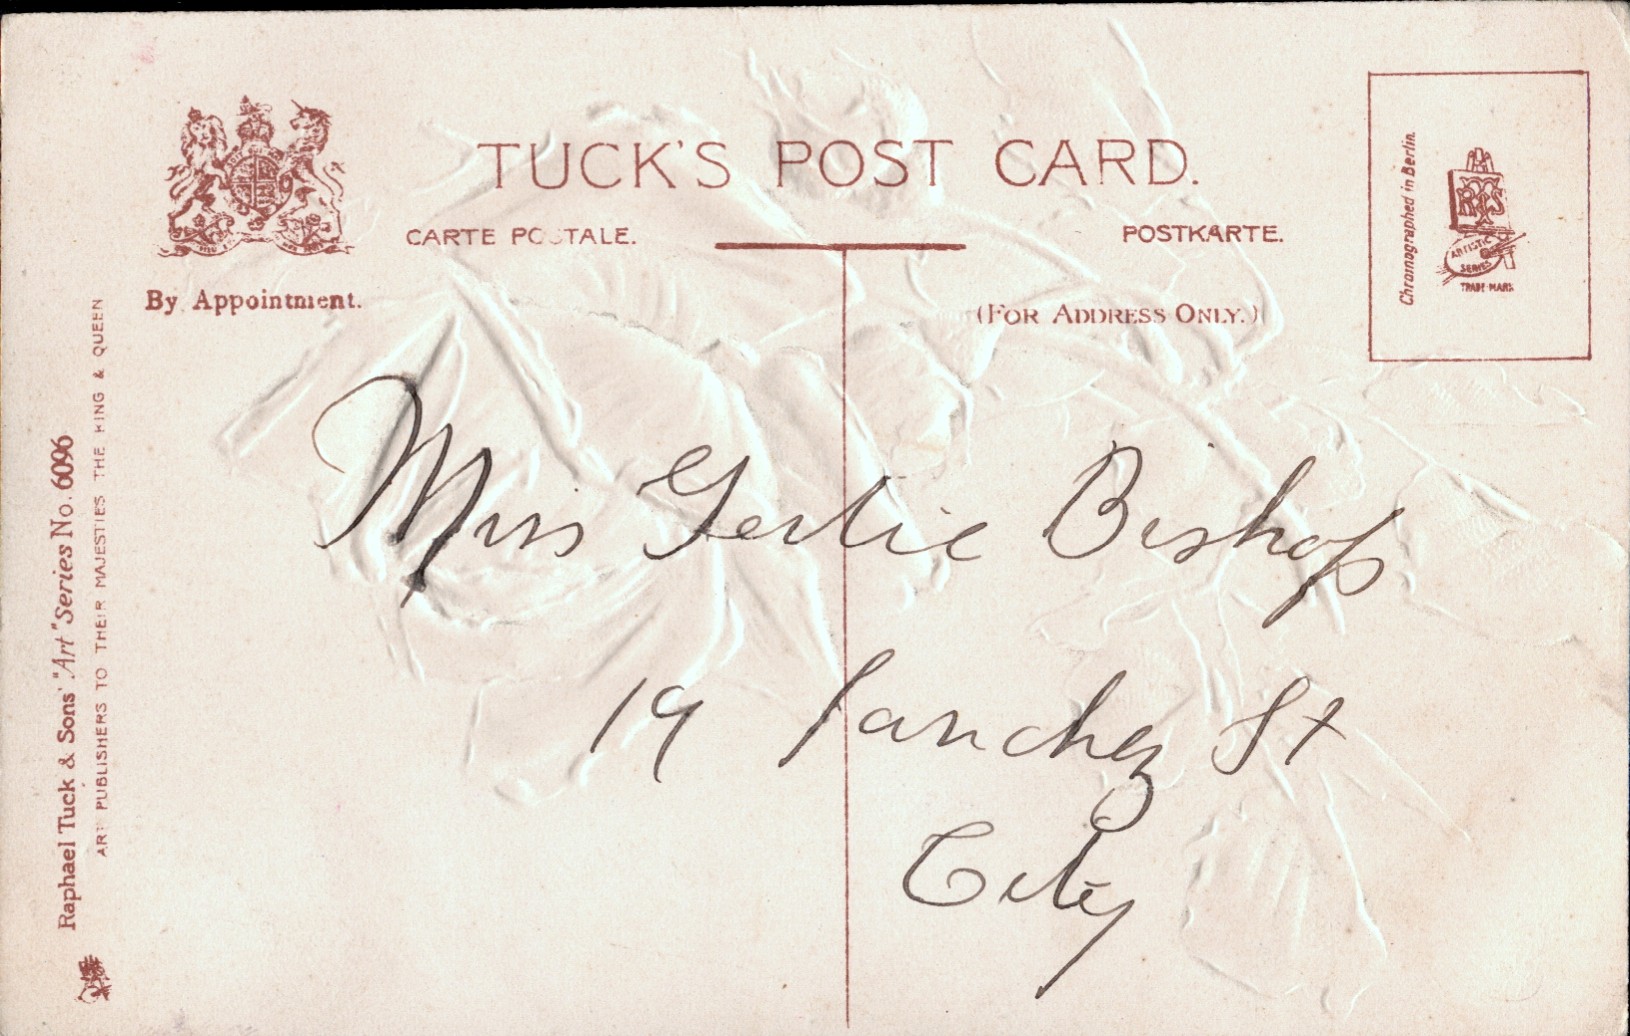 TUCK'S POST CARD.
CARTE POSTALE.
POSTKARTE.
By Appointment.
(FOR ADDRESS ONLY.)
Chromographed in Berlin.
RTS
ARTISTIC
SERIES
TRADE MARK
Miss Gertie Bishop
19 Sanchez St
City
Raphael Tuck & Sons' "Art" Series No. 6096
ART PUBLISHERS TO THEIR MAJESTIES THE KING & QUEEN